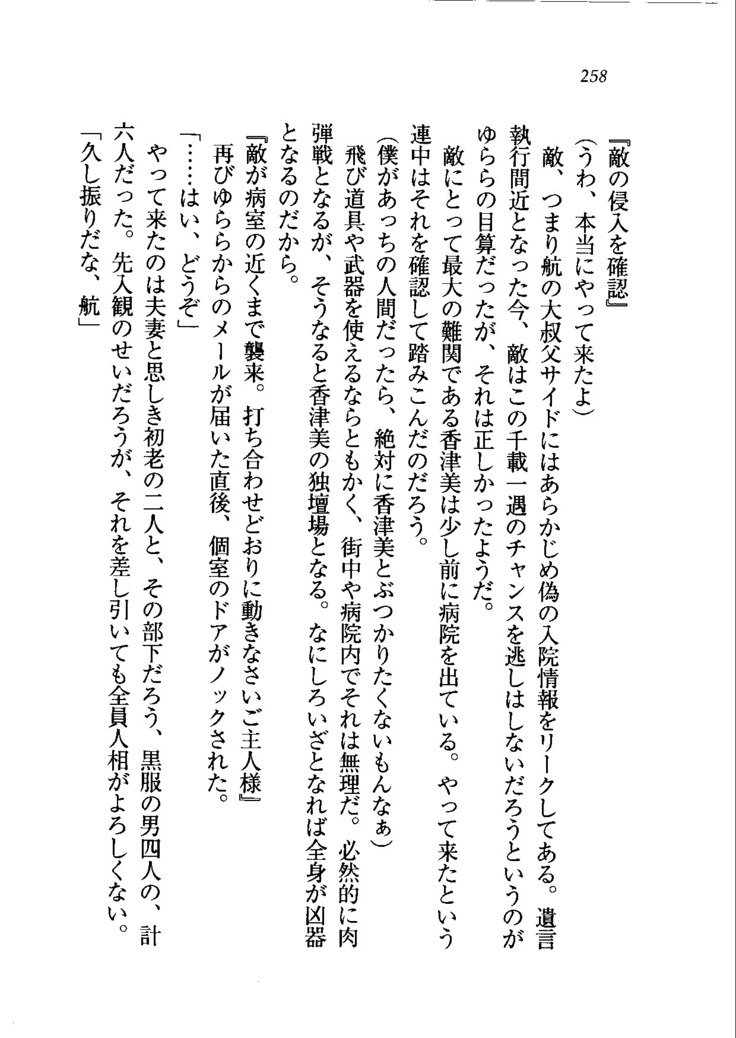 258
『敵の侵入を確認』
(うわ、本当にやって来たよ)
敵、つまり航の大叔父サイドにはあらかじめ偽の入院情報をリークしてある。遺言
執行間近となった今、敵はこの千載一遇のチャンスを逃しはしないだろうというのが
ゆららの目算だったが、それは正しかったようだ。
敵にとって最大の難関である香津美は少し前に病院を出ている。やって来たという
連中はそれを確認して踏みこんだのだろう。
(僕があっちの人間だったら、絶対に香津美とぶつかりたくないもんなぁ)
飛び道具や武器を使えるならともかく、街中や病院内でそれは無理だ。必然的に肉
弾戦となるが、そうなると香津美の独壇場となる。なにしろいざとなれば全身が凶器
となるのだから。
『敵が病室の近くまで襲来。打ち合わせどおりに動きなさいご主人様』
再びゆららからのメールが届いた直後、個室のドアがノックされた。
「……はい、どうぞ」
やって来たのは夫妻と思しき初老の二人と、その部下だろう、黒服の男四人の、計
六人だった。先入観のせいだろうが、それを差し引いても全員人相がよろしくない。
「久し振りだな、航」